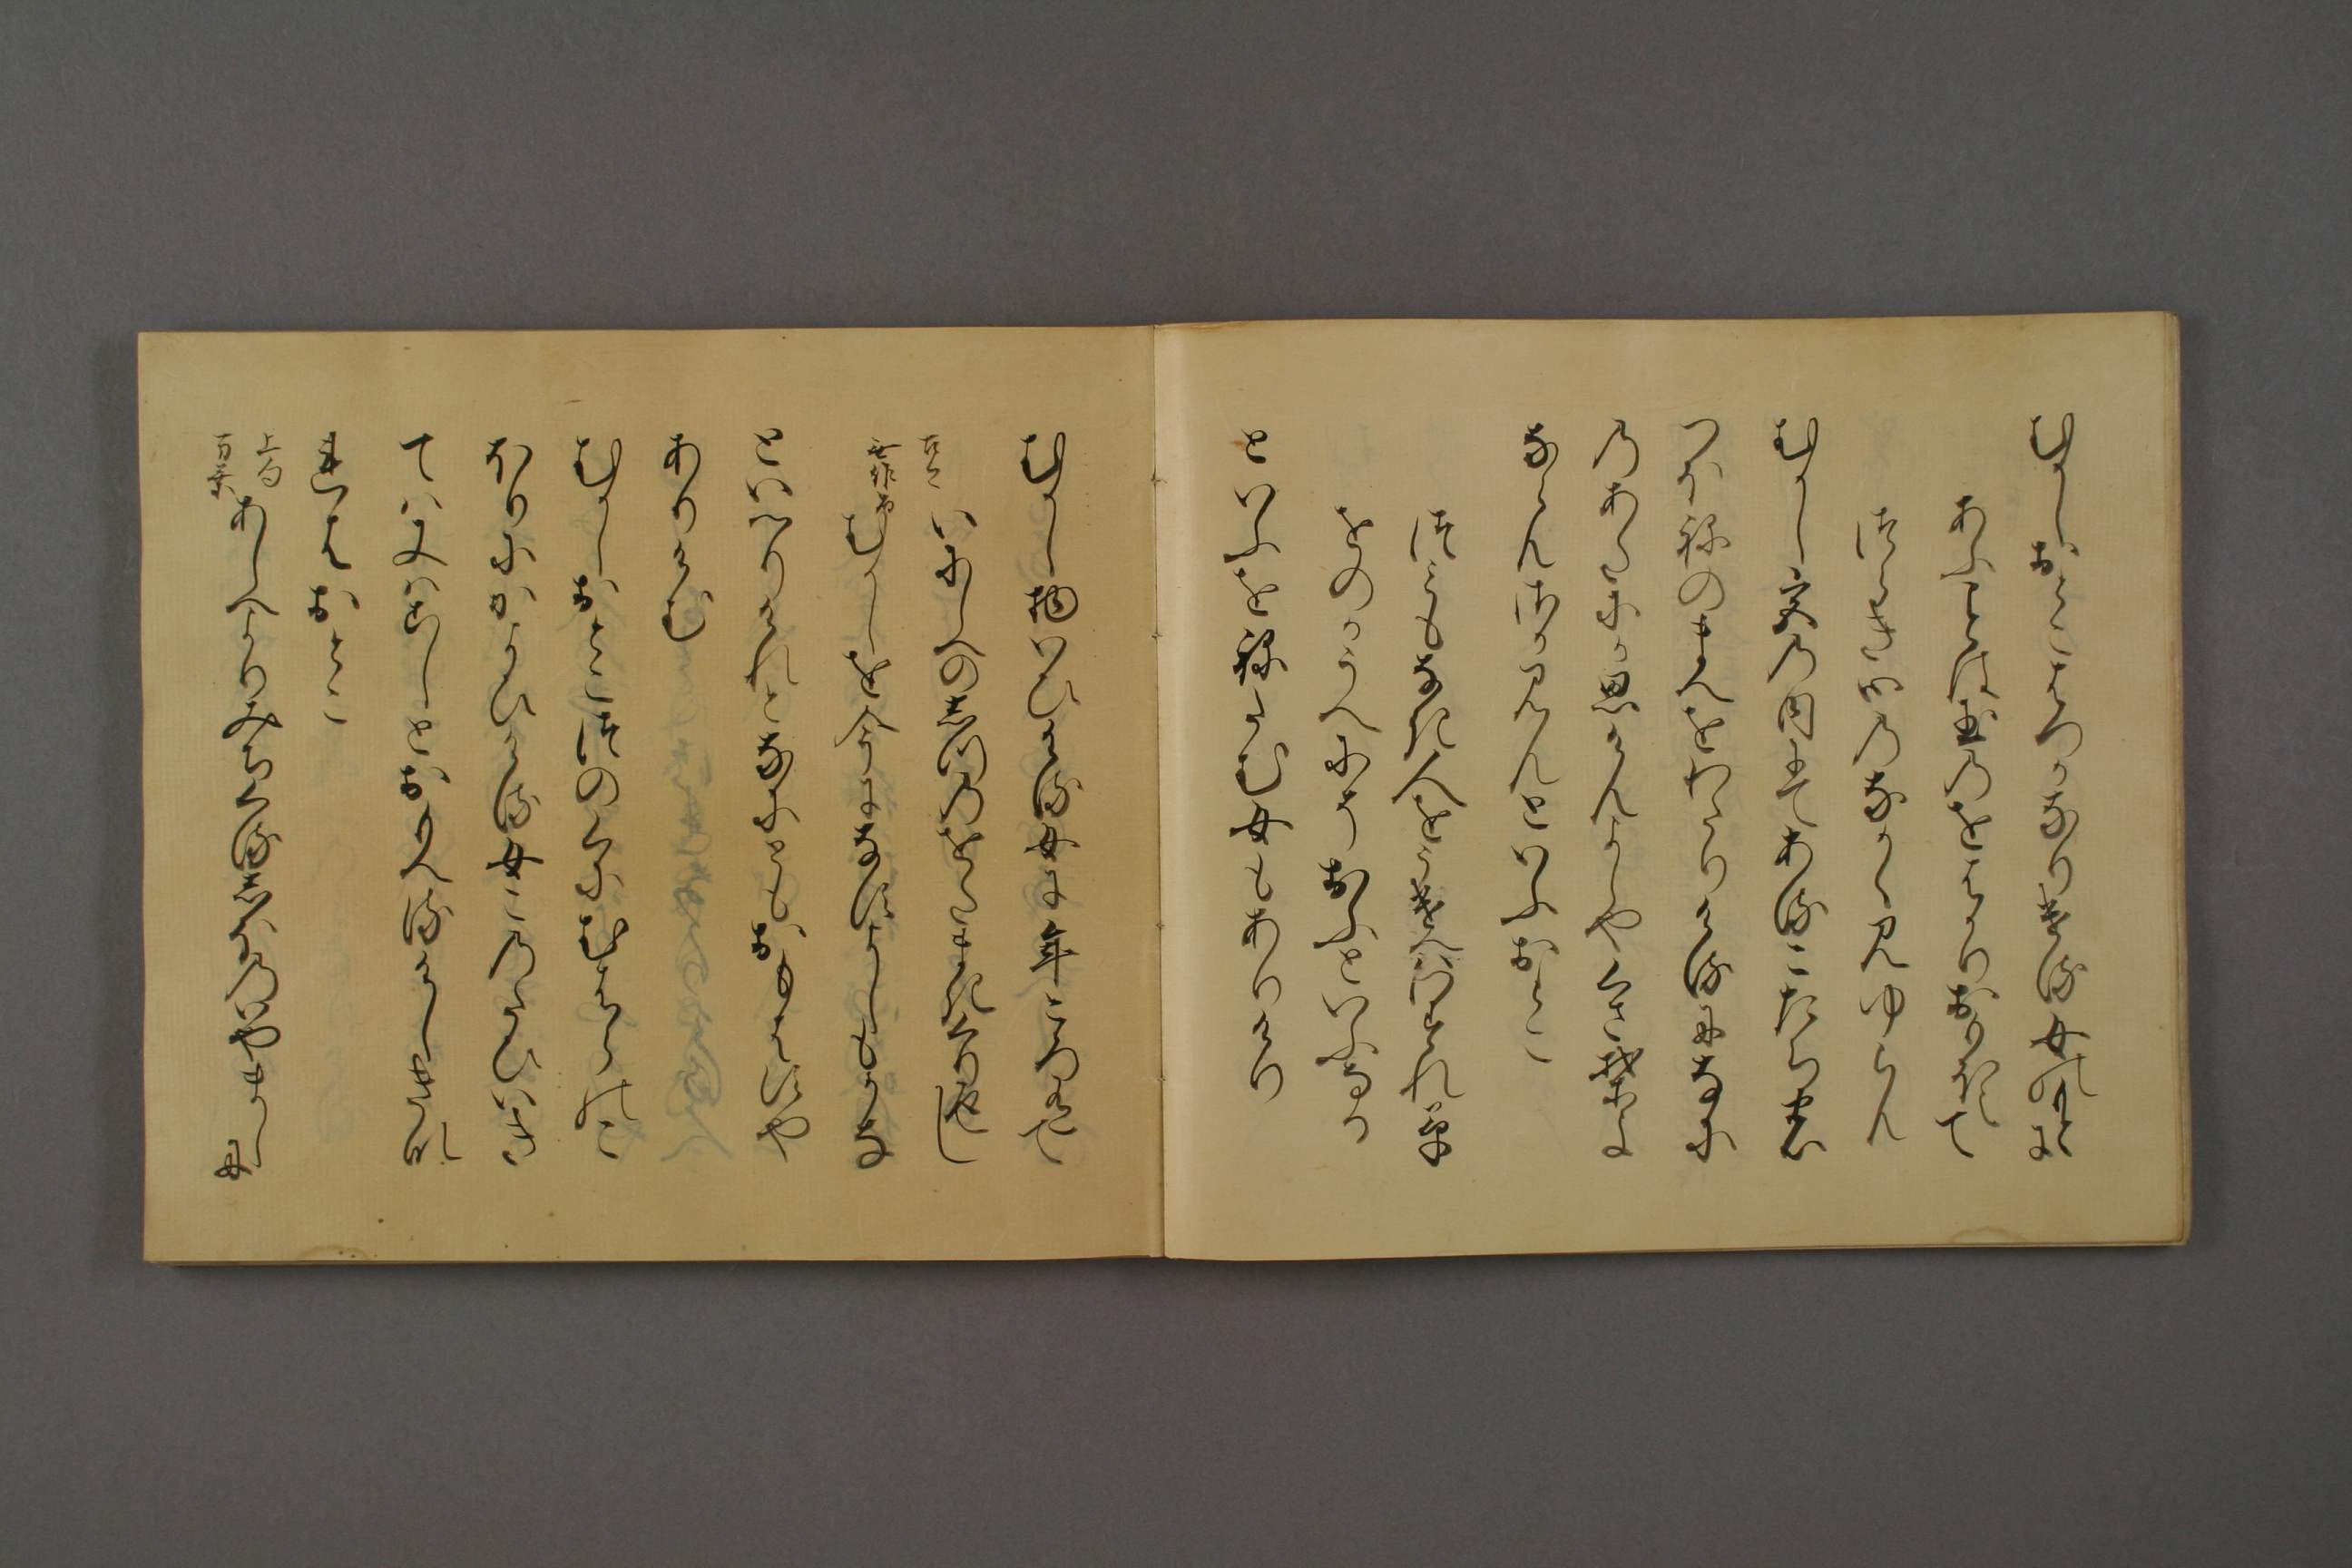 むかしおとこはつかなりける女のもとに
あふことは玉のをはかりおもほえて
つらき心のなかく見ゆらん
むかし宮の内にてあるこたちの
つほねのまへをわたりけるになにの
あたにか思けんよしや草はよ
ならんさか見んといふおとこ
つみもなき人をうけへはわすれ草
をのかうへにそおふといふなる
といふをねたむ女もありけり
むかし物いひける女に年ころありて
いにしへのしつのをたまきくり返し
むかしを今になすよしもかな
といへりけれとなにともおもはすや
ありけむ
むかしおとこつのくにむはらのこ
ほりにかよひける女このたひいき
ては又はこしとおもへるけしきな
れはおとこ
万葉
あしへよりみちくるしほのいやましに